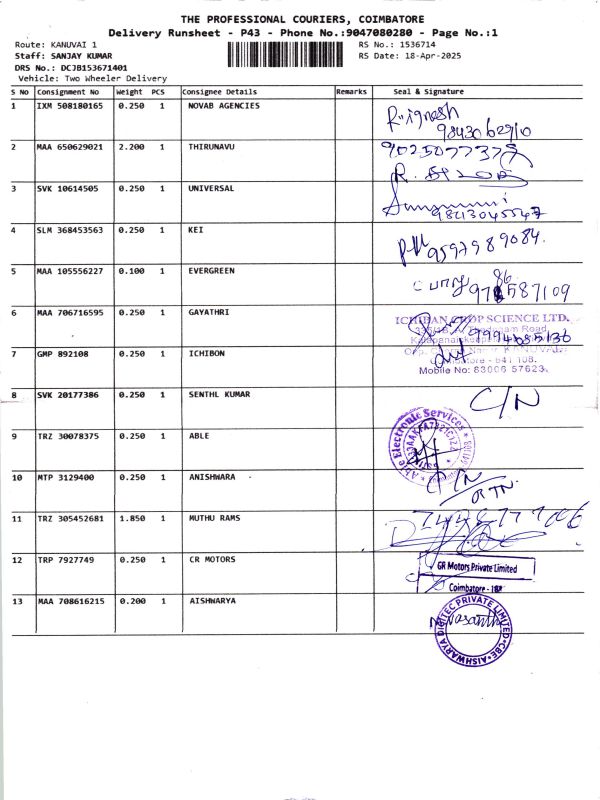 THE PROFESSIONAL COURIERS, COIMBATORE
Delivery Runsheet - P43 - Phone No.:9047080280 - Page No.:1
Route: KANUVAI 1 RS No.: 1536714
Staff: SANJAY KUMAR RS Date: 18-Apr-2025
DRS No.: DCJB153671401
Vehicle: Two Wheeler Delivery
S No Consignment No Weight PCS Consignee Details Remarks Seal & Signature
1 IXM 508180165 0.250 1 NOVAB AGENCIES
9843062910
2 MAA 650629021 2.200 1 THIRUNAVU 9025077379
3 SVK 10614505 0.250 1 UNIVERSAL
9843045547
4 SLM 368453563 0.250 1 KEI
9597989084.
5 MAA 105556227 0.100 1 EVERGREEN
6 MAA 706716595 0.250 1 GAYATHRI
ICHIBAN CROP SCIENCE LTD.
7 GMP 892108 0.250 1 ICHIBON
Mobile No: 83006 57623
8 SVK 20177386 0.250 1 SENTHL KUMAR C/N
9 TRZ 30078375 0.250 1 ABLE
Able Electronic Services
10 MTP 3129400 0.250 1 ANISHWARA
RTN
11 TRZ 305452681 1.850 1 MUTHU RAMS
12 TRP 7927749 0.250 1 CR MOTORS
GR Motors Private Limited
Coimbatore
13 MAA 708616215 0.200 1 AISHWARYA
Vasanth
AISHWARYA DIGITEC PRIVATE LIMITED CBE